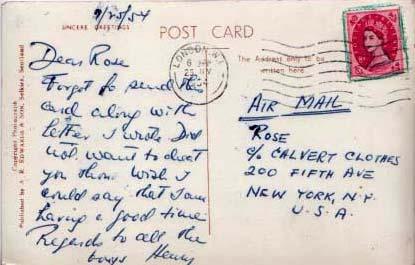 9/25/54
SINCERE GREETINGS
POST CARD
Dear Rose
Forgot to send this
card along with
letter I wrote. Did
not want to cheat
you show. Wish I
could say that I am
having a good time
Regards to all the
boys Henry
Copyright Photograph
Published by A. R. EDWARDS & SON, Selkirk, Scotland
LONDON. W.1.
6
25
The Address only to be
written here.
AIR MAIL
ROSE
C/o CALVERT CLOTHES
200 FIFTH AVE
NEW YORK, N.Y.
U.S.A.